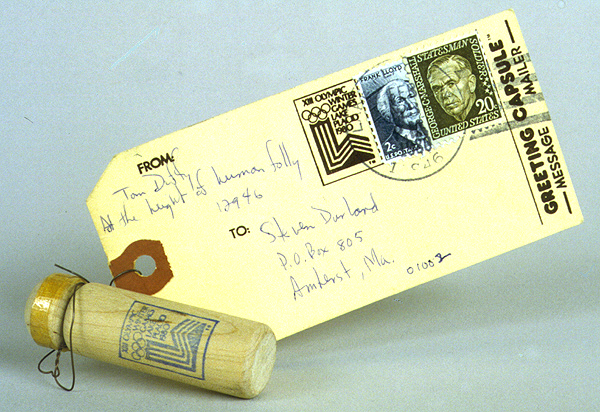 GREETING CAPSULE™
MESSAGE MAILER
XIII OLYMPIC
WINTER
GAMES
LAKE
PLACID
1980
FRANK LLOYD
2c
U.S. POSTAGE
GEORGE C. MARSHALL
STATESMAN
SOLDIER
20c
UNITED STATES
FROM:
Tom Duffy
At the height of human folly
12946
TO:
Steven Durland
P.O. Box 805
Amherst, Ma.
01002